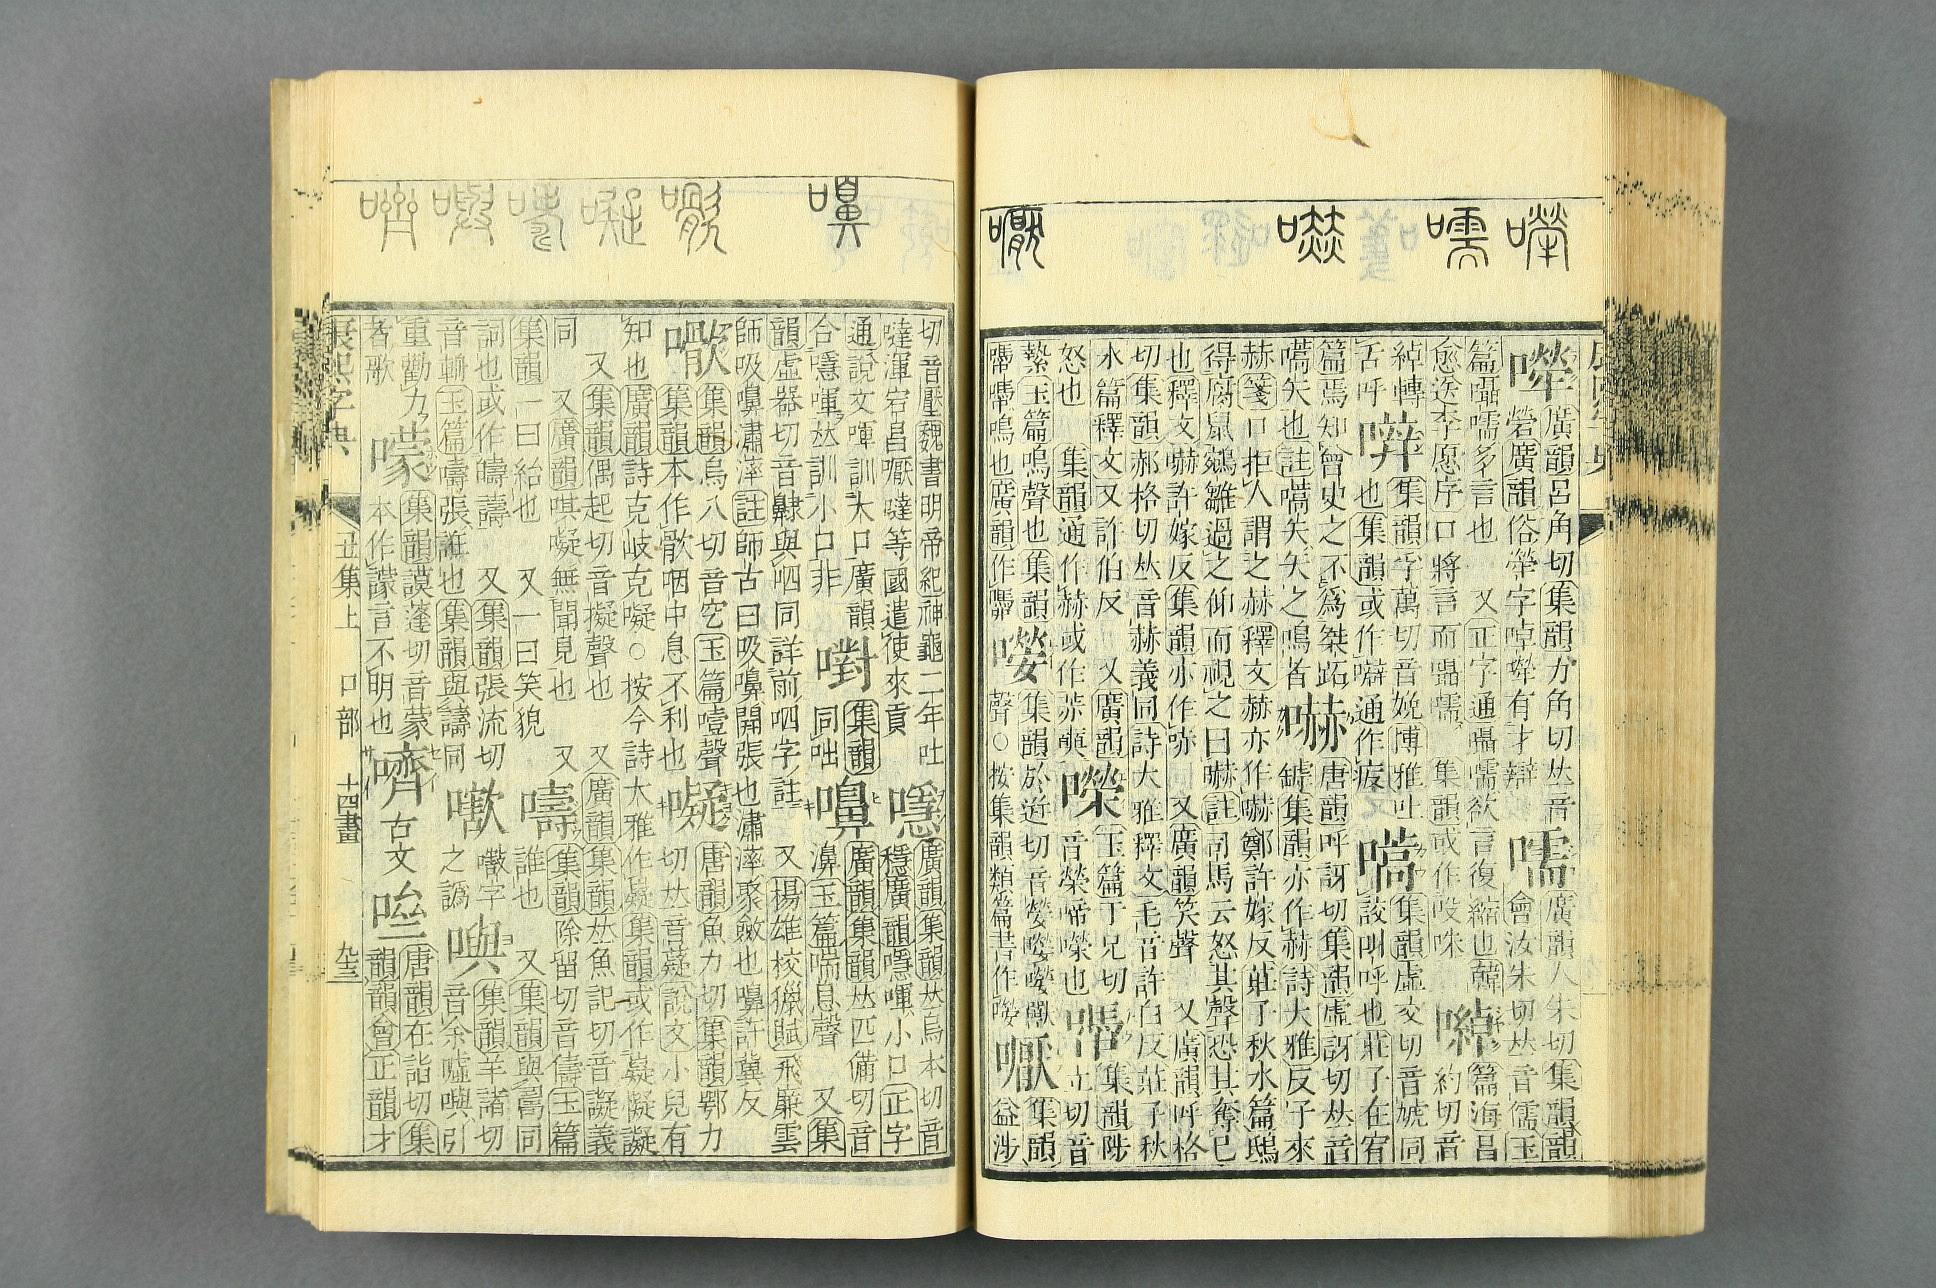 廣韻呂角切集韻力角切𠀤音
犖廣韻俗犖字啅犖有才辯
嚅
廣韻人朱切集韻韻
會汝朱切𠀤音儒玉
篇囁嚅多言也 又正字通囁嚅欲言復縮也韓
愈送李愿序口將言而囁嚅 集韻或作
篇海昌
約切音
綽轉
舌呼
集韻孚萬切音娩博雅吐
也集韻或作噼通作疲
嚆
集韻虛交切音虓同
詨叫呼也莊子在宥
篇焉知曾史之不爲桀跖
嚆矢也註嚆矢矢之鳴者
嚇
唐韻呼訝切集韻虛訝切𠀤音
罅集韻亦作赫詩大雅反子來
赫箋口拒人謂之赫釋文赫亦作嚇鄭許嫁反莊子秋水篇鴟
得腐鼠鵷雛過之仰而視之曰嚇註司馬云怒其聲恐其奪己
也釋文嚇許嫁反集韻亦作哧 又廣韻笑聲 又廣韻呼格
切集韻郝格切𠀤音赫義同詩大雅釋文毛音許白反莊子秋
水篇釋文又許伯反 又廣韻
怒也 集韻通作赫或作
玉篇于兄切
音榮啼
集韻陟
立切音
縶玉篇嗚聲也集韻
鳴也廣韻作
集韻於近切音
聲○按集韻類篇書作
嚈
集韻
益涉
切音壓魏書明帝紀神龜二年吐
噠渾宕昌嚈噠等國遣使來貢
廣韻集韻𠀤烏本切音
穩廣韻㖧小口正字
通說文㖧訓大口廣韻
合㖧𠀤訓小口非
嚉
集韻
同咄
嚊
廣韻集韻𠀤匹備切音
濞玉篇喘息聲 又集
韻虛器切音齂與呬同詳前呬字註 又揚雄校獵賦飛廉雲
師吸嚊潚率註師古曰吸嚊開張也潚率聚斂也嚊許冀反
集韻烏八切音穵玉篇噎聲
集韻本作咽中息不利也
㘈
唐韻魚力切集韻鄂力
切𠀤音嶷說文小兒有
知也廣韻詩克岐克㘈○按今詩大雅作嶷集韻或作嶷譺
又集韻偶起切音擬聲也 又廣韻集韻𠀤魚記切音譺義
同 又廣韻㖷㘈無聞見也 又
集韻一曰紿也 又一曰笑貌
嚋
集韻除留切音儔玉篇
誰也 又集韻與同
詞也或作譸 又集韻張流切
音輈玉篇嚋張誑也集韻與譸同
字
之譌
集韻羊諸切
音余噓引
重勸力
者歌
集韻謨蓬切音蒙
本作言不明也
嚌
古文
唐韻在詣切集
韻韻會正韻才
康熙字典 丑集上 口部 十四畫 九十三